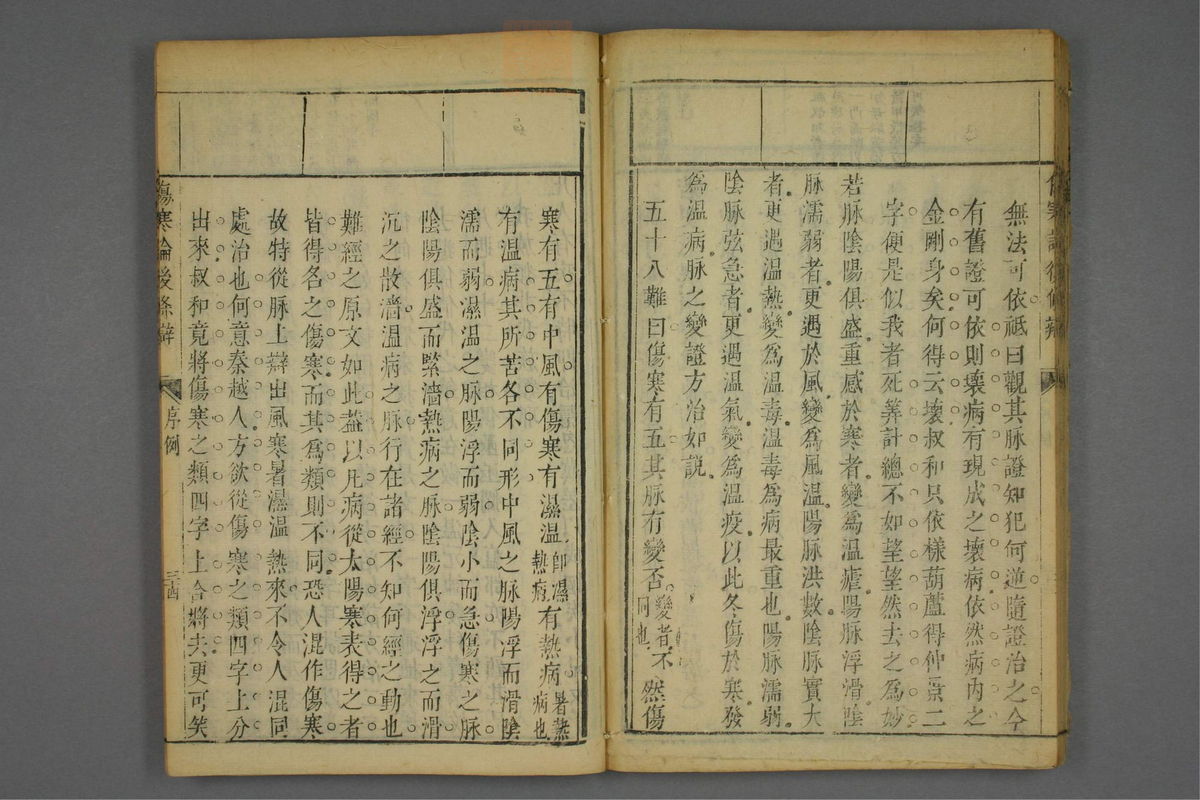 無法可依祇曰觀其脉證知犯何逆隨證治之今
有舊證可依則壞病有現成之壞病依然病內之
金剛身矣何得云壞叔和只依樣葫蘆得仲景二
字便是似我者死筭計總不如望望然去之爲妙
若脉陰陽俱盛重感於寒者變爲温瘧陽脉浮滑陰
脉濡弱者更遇於風變爲風温陽脉洪數陰脉實大
者更遇温熱變爲温毒温毒爲病最重也陽脉濡弱
陰脉弦急者更遇温氣變爲温疫以此冬傷於寒發
爲温病脉之變證方治如說
五十八難曰傷寒有五其脉有變否變者不同也然傷
寒有五有中風有傷寒有濕温卽濕熱病有熱病暑熱病也
有温病其所苦各不同形中風之脉陽浮而滑陰
濡而弱濕温之脉陽浮而弱陰小而急傷寒之脉
陰陽俱盛而緊濇熱病之脉陰陽俱浮浮之而滑
沉之散濇温病之脉行在諸經不知何經之動也
難經之原文如此葢以凡病從太陽寒表得之者
皆得名之傷寒而其爲類則不同恐人混作傷寒
故特從脉上辯出風寒暑濕温熱來不令人混同
處治也何意秦越人方欲從傷寒之類四字上分
出來叔和竟將傷寒之類四字上合將去更可笑
傷寒論後條辯
序例
三十四